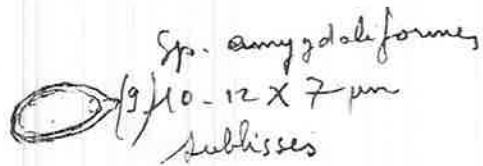 Sp. amygdaliformes
(9)10-12 X 7 µm
sublisses